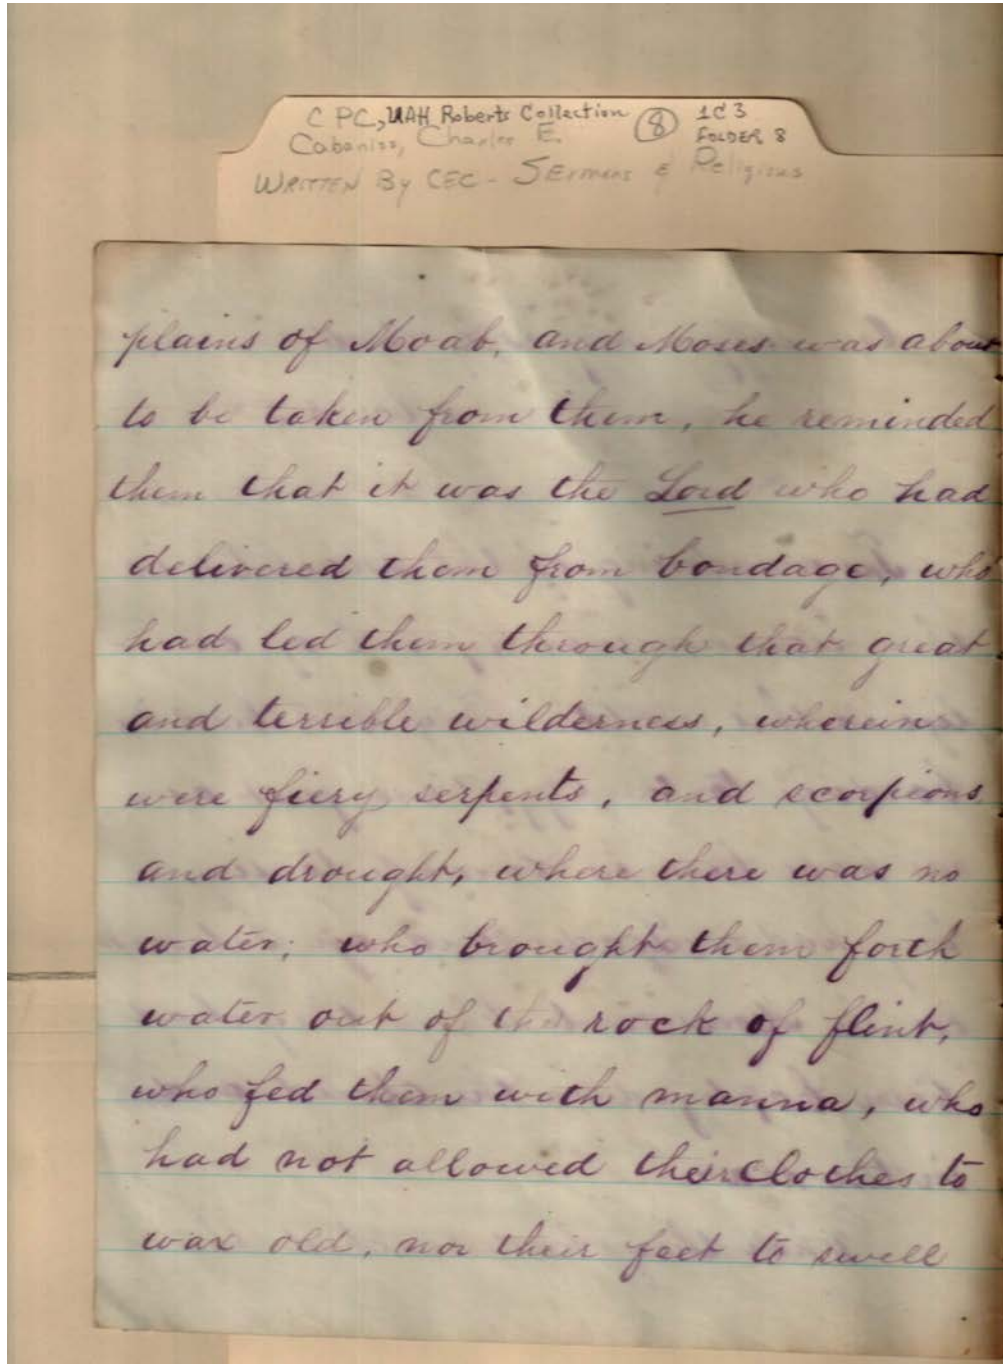 C PC, UAH Roberts Collection (8) 1C3
Cabaniss, Charles E. FOLDER 8
WRITTEN By CEC - SErmons & Religious
plains of Moab, and Moses was about
to be taken from them, he reminded
them that it was the Lord who had
delivered them from bondage, who
had led them through that great
and terrible wilderness, wherein
were fiery serpents, and scorpions
and drought, where there was no
water; who brought them forth
water out of the rock of flint,
who fed them with manna, who
had not allowed their clothes to
wax old, nor their feet to swell